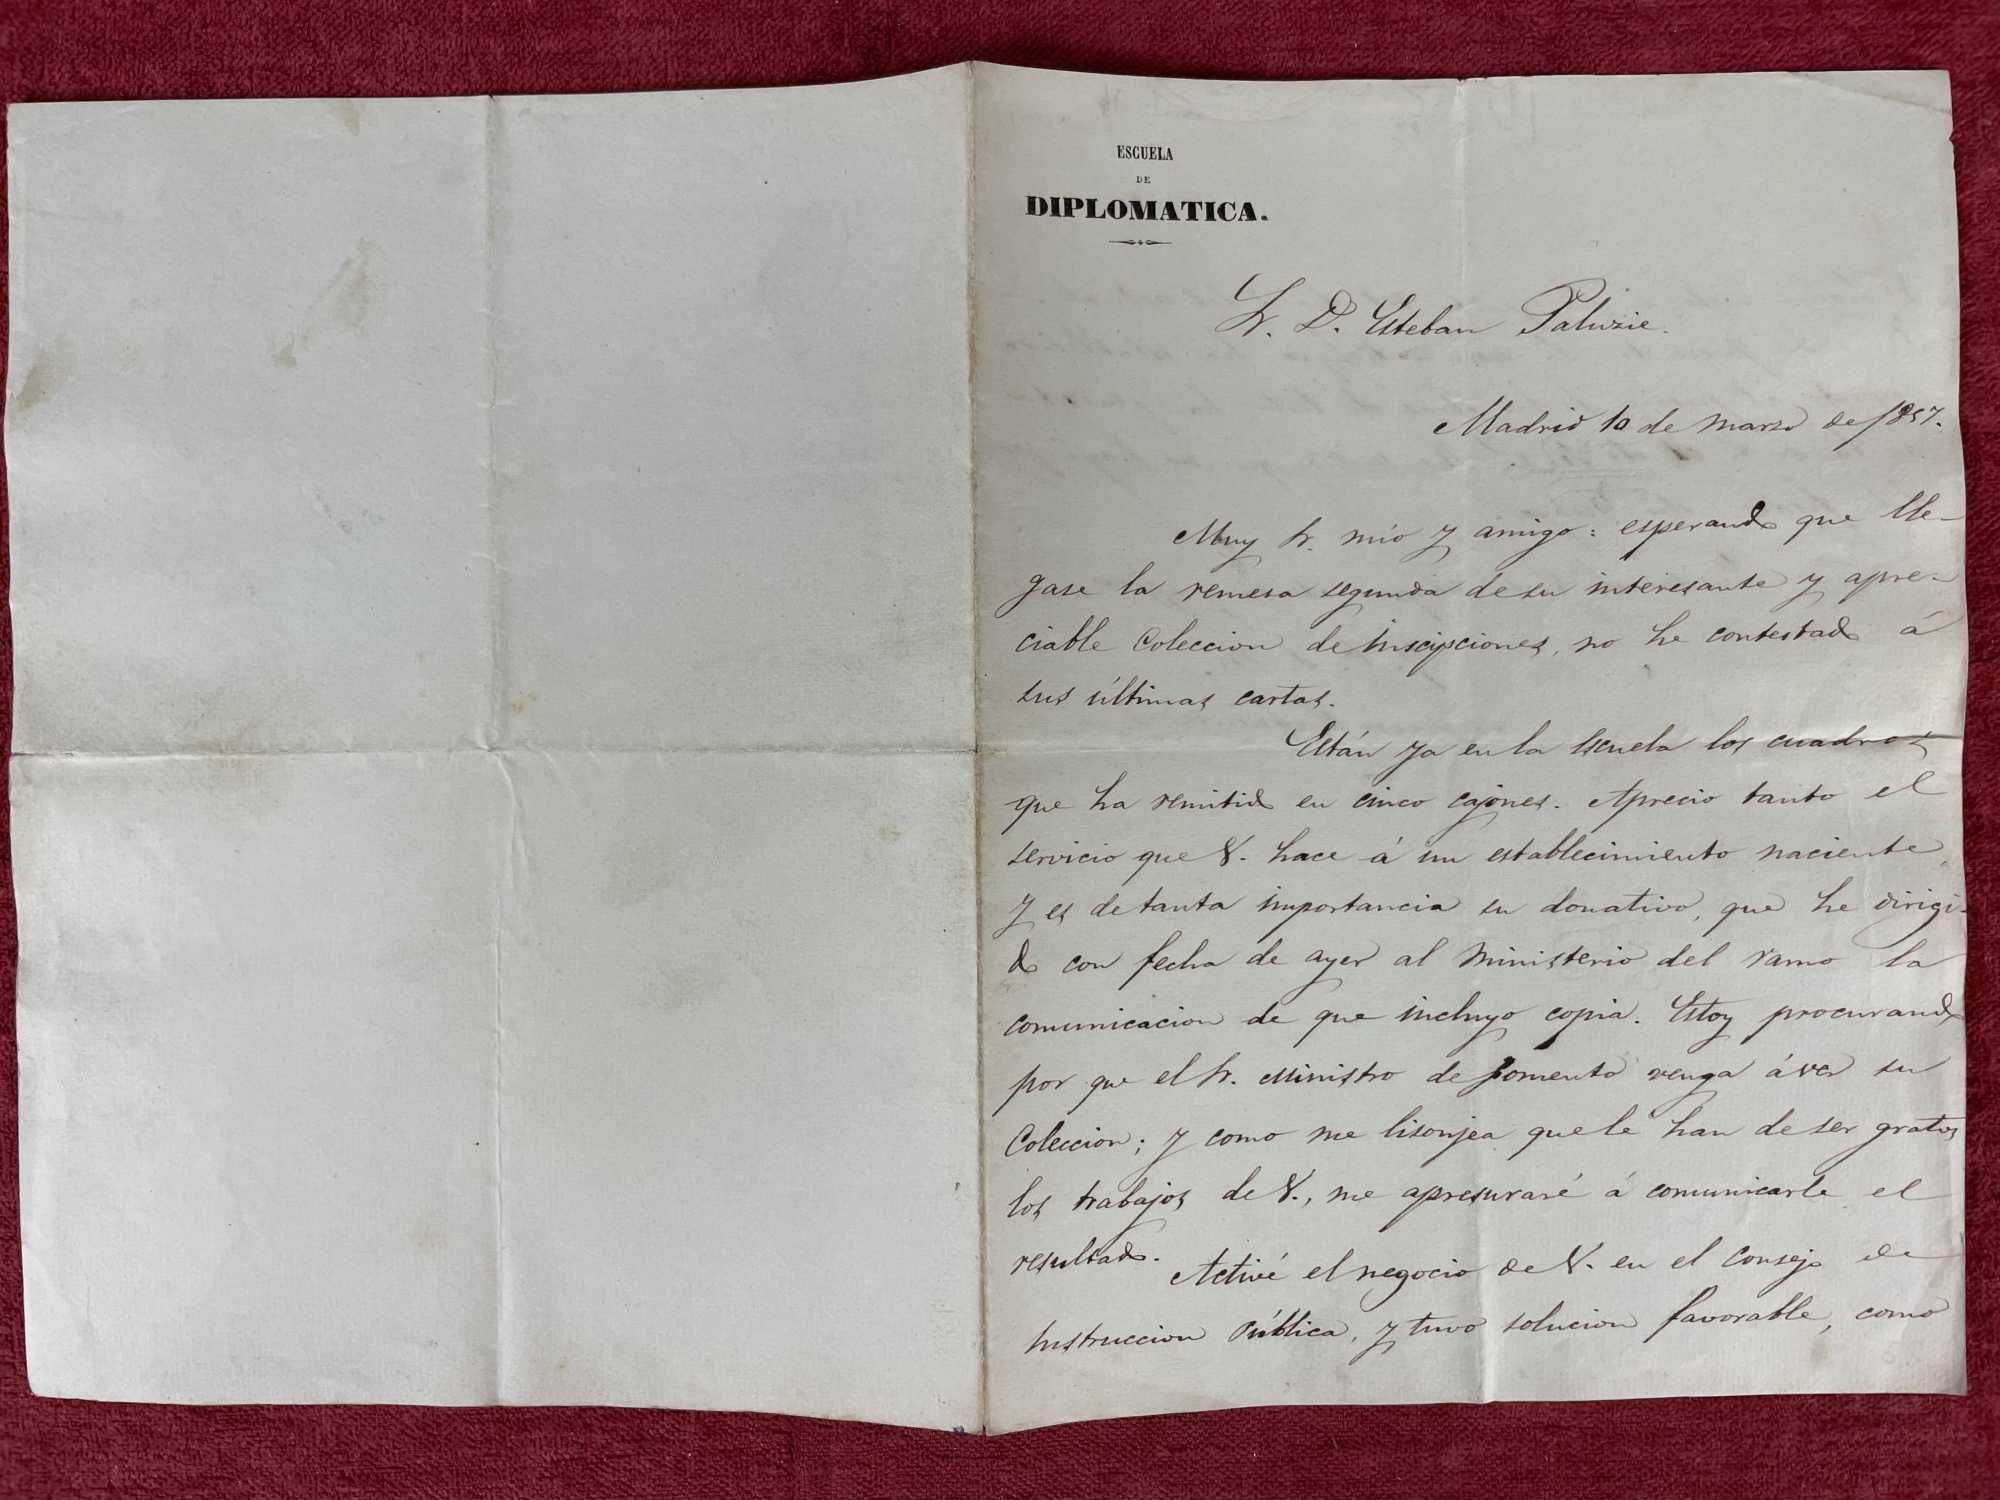 ESCUELA
DE
DIPLOMATICA.
Sr. D. Esteban Paluzie.
Madrid 10 de marzo de 1857.
Muy Sr. mío y amigo: esperando que lle-
gase la remesa segunda de su interesante y apre-
ciable Coleccion de Inscipciones, no he contestado á
sus últimas cartas.
Están ya en la Escuela los cuadros
que ha remitido en cinco cajones. Aprecio tanto el
servicio que V. hace á un establecimiento naciente,
y es de tanta importancia su donativo, que he dirigi-
do con fecha de ayer al Ministerio del ramo la
comunicacion de que incluyo copia. Estoy procurando
por que el Sr. Ministro de Fomento venga á ver su
Coleccion; y como me lisonjea que le han de ser gratos
los trabajos de V., me apresuraré á comunicarle el
resultado.
Activé el negocio de V. en el Consejo de
Instruccion Pública, y tuvo solucion favorable, como